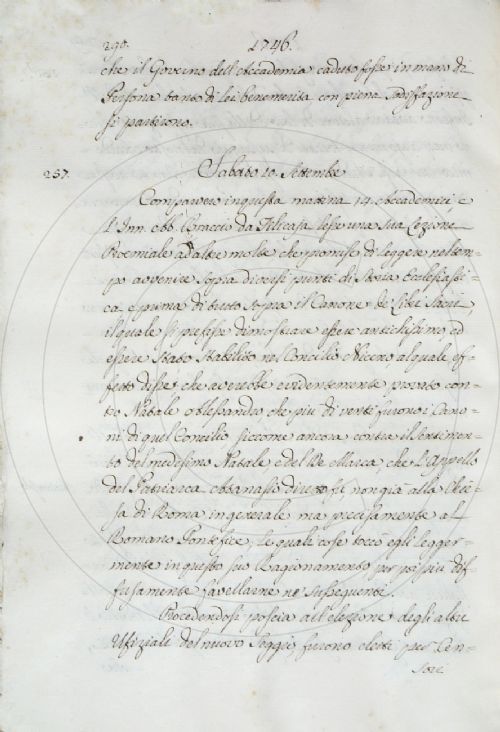 290.
1746.
che il Governo dell'Accademia caduto fosse in mano di
Persona tanto di lei benemerita con piena sodisfazione
si partirono.
257.
Sabato 10. Settembre
Comparvero in questa mattina 14. Accademici, e
l'Inn. Abb. Braccio da Filicaja lesse una sua Lezione
Proemiale ad altre molte che promise di leggere nel tem=
po avvenire sopra diversi punti di Storia Ecclesiasti=
ca e prima di tutto sopra il Canone de' Libri Sacri,
il quale si prefisse dimostrare essere antichissimo, ed
essere stato stabilito nel Concilio Niceno, al quale ef=
fetto disse, che averebbe evidentemente provato con=
tro Natale Alessandro, che più di venti furono i Cano=
ni di quel Concilio siccome ancora contra il sentimen=
to del medesimo Natale e del De Marca, che l'Appello
del Patriarca Attanasio diretto fu non già alla Chie=
sa di Roma in generale ma precisamente al
Romano Pontefice, le quali cose toccò egli legger=
mente in questo suo Ragionamento per poi più dif=
fusamente favellarne ne' susseguenti.
Procedendosi poscia all'elezione degli altri
Ufiziali del nuovo Seggio, furono eletti per Cen=
sori